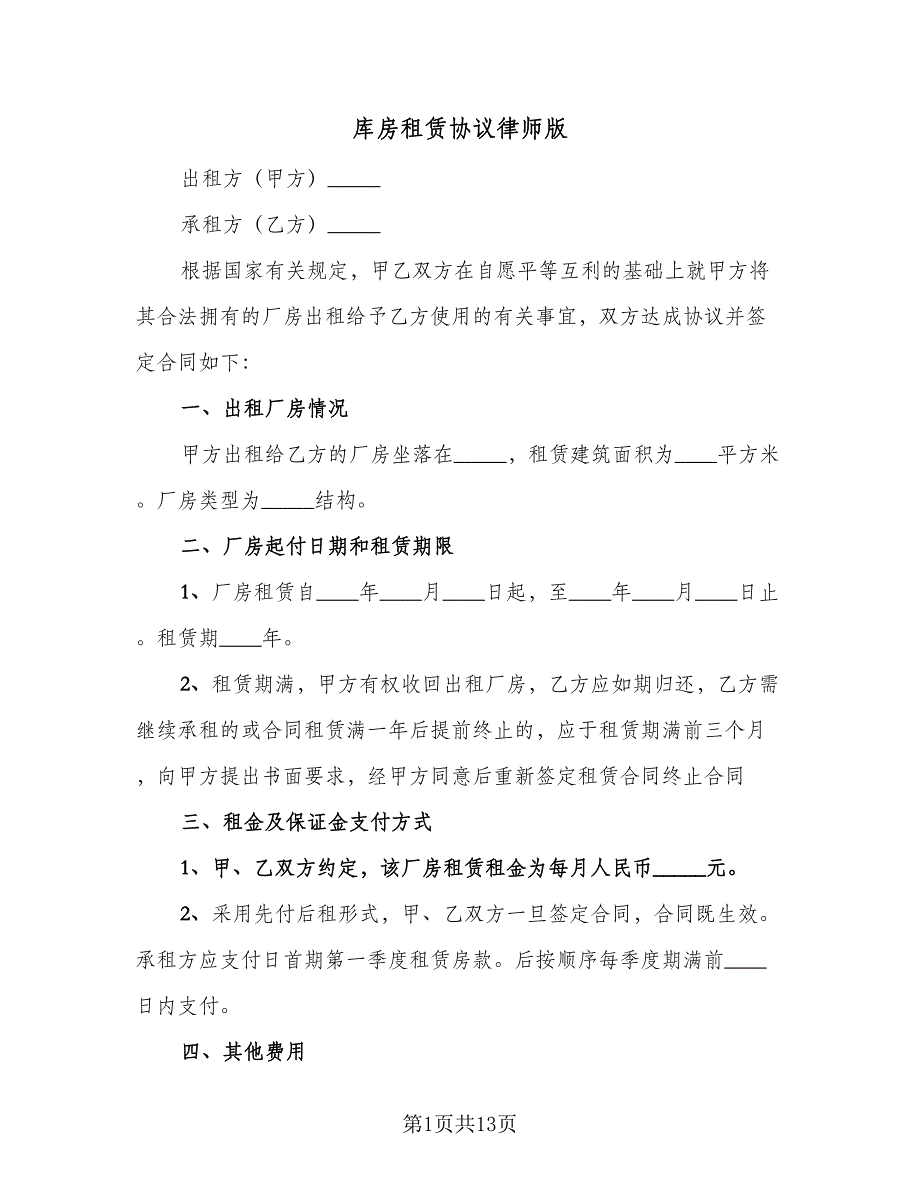 库房租赁协议律师版
出租方（甲方）_____
承租方（乙方）_____
根据国家有关规定，甲乙双方在自愿平等互利的基础上就甲方将
其合法拥有的厂房出租给予乙方使用的有关事宜，双方达成协议并签
定合同如下：
一、出租厂房情况
甲方出租给乙方的厂房坐落在_____，租赁建筑面积为____平方米
。厂房类型为_____结构。
二、厂房起付日期和租赁期限
1、厂房租赁自____年____月____日起，至____年____月____日止
。租赁期____年。
2、租赁期满，甲方有权收回出租厂房，乙方应如期归还，乙方需
继续承租的或合同租赁满一年后提前终止的，应于租赁期满前三个月
，向甲方提出书面要求，经甲方同意后重新签定租赁合同终止合同
三、租金及保证金支付方式
1、甲、乙双方约定，该厂房租赁租金为每月人民币_____元。
2、采用先付后租形式，甲、乙双方一旦签定合同，合同既生效。
承租方应支付日首期第一季度租赁房款。后按顺序每季度期满前____
日内支付。
四、其他费用
第1页共13页